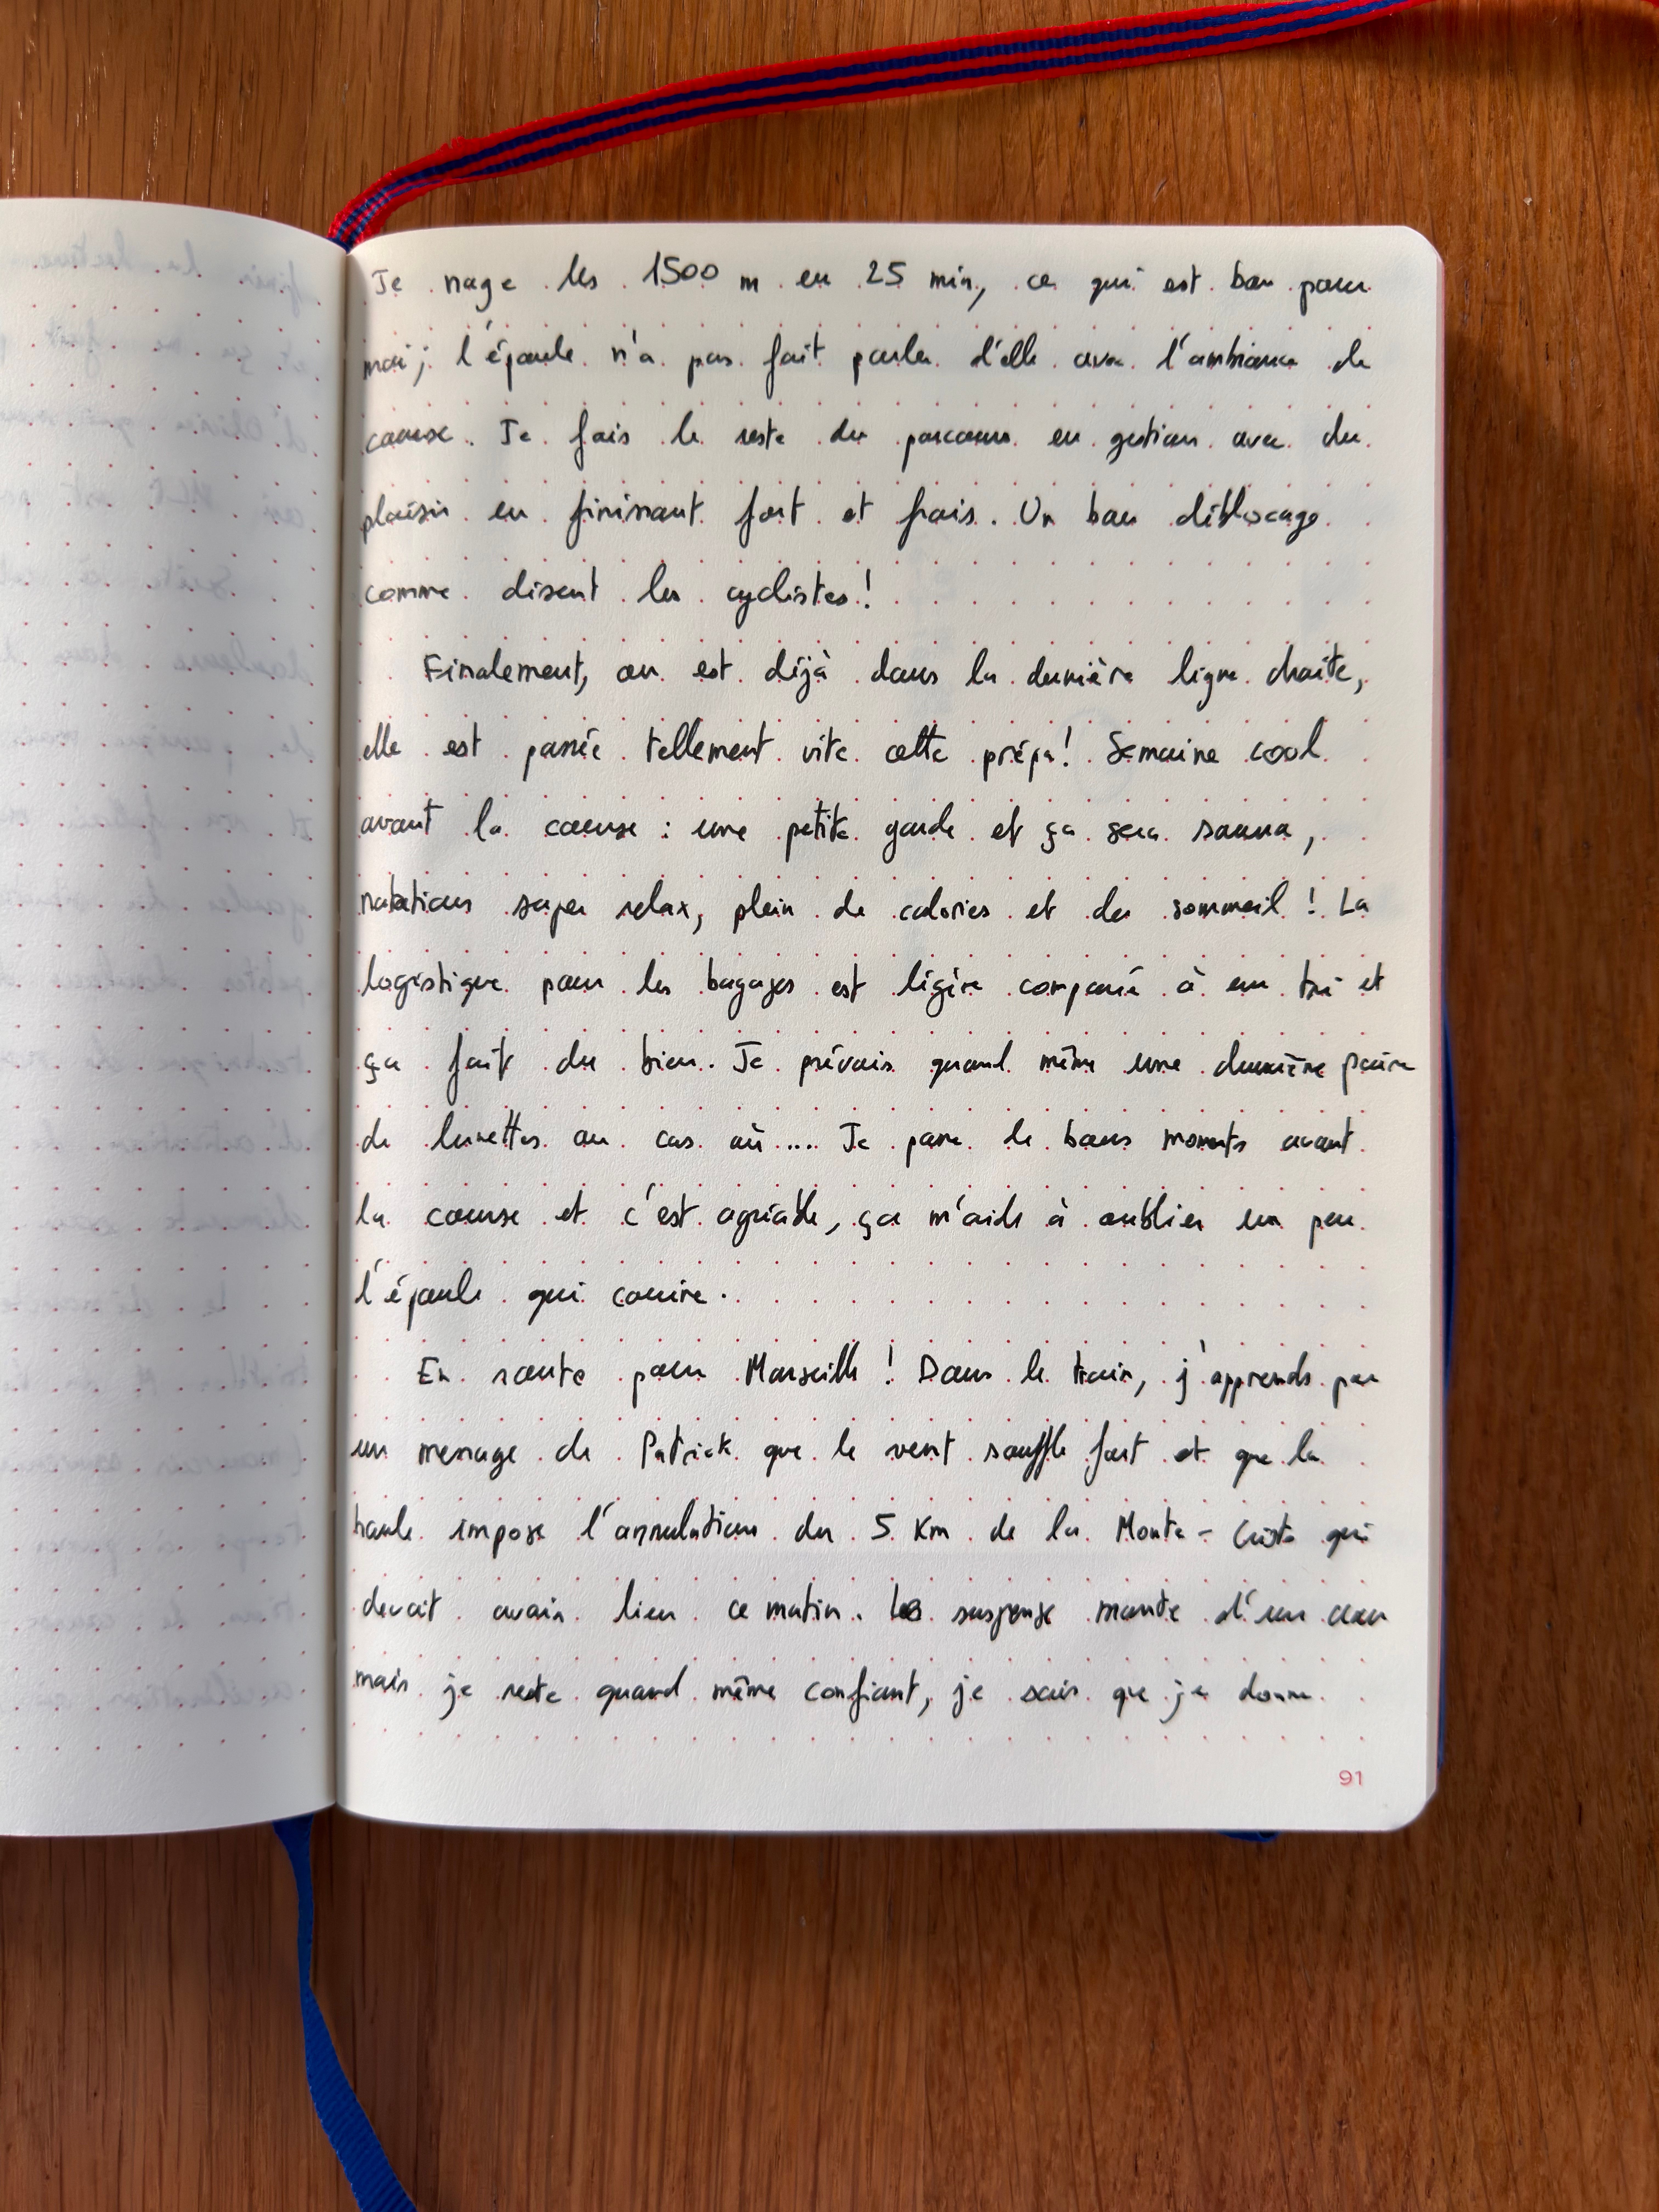 Je nage les 1500 m en 25 min, ce qui est bon pour
moi; l'épaule n'a pas fait parler d'elle avec l'ambiance de
course. Je fais le reste du parcours en gestion avec du
plaisir en finissant fort et frais. Un bon déblocage
comme disent les cyclistes!
Finalement, on est déjà dans la dernière ligne droite,
elle est passée tellement vite cette prépa! Semaine cool
avant la course : une petite garde et ça sera sauna,
natations super relax, plein de calories et du sommeil ! La
logistique pour les bagages est légère comparé à un tri et
ça fait du bien. Je prévois quand même une deuxième paire
de lunettes au cas où.... Je passe de bons moments avant
la course et c'est agréable, ça m'aide à oublier un peu
l'épaule qui couine.
En route pour Marseille ! Dans le train, j'apprends par
un message de Patrick que le vent souffle fort et que la
houle impose l'annulation du 5 Km de la Monte-Cristo qui
devait avoir lieu ce matin. Le suspense monte d'un cran
mais je reste quand même confiant, je sais que je donne
91